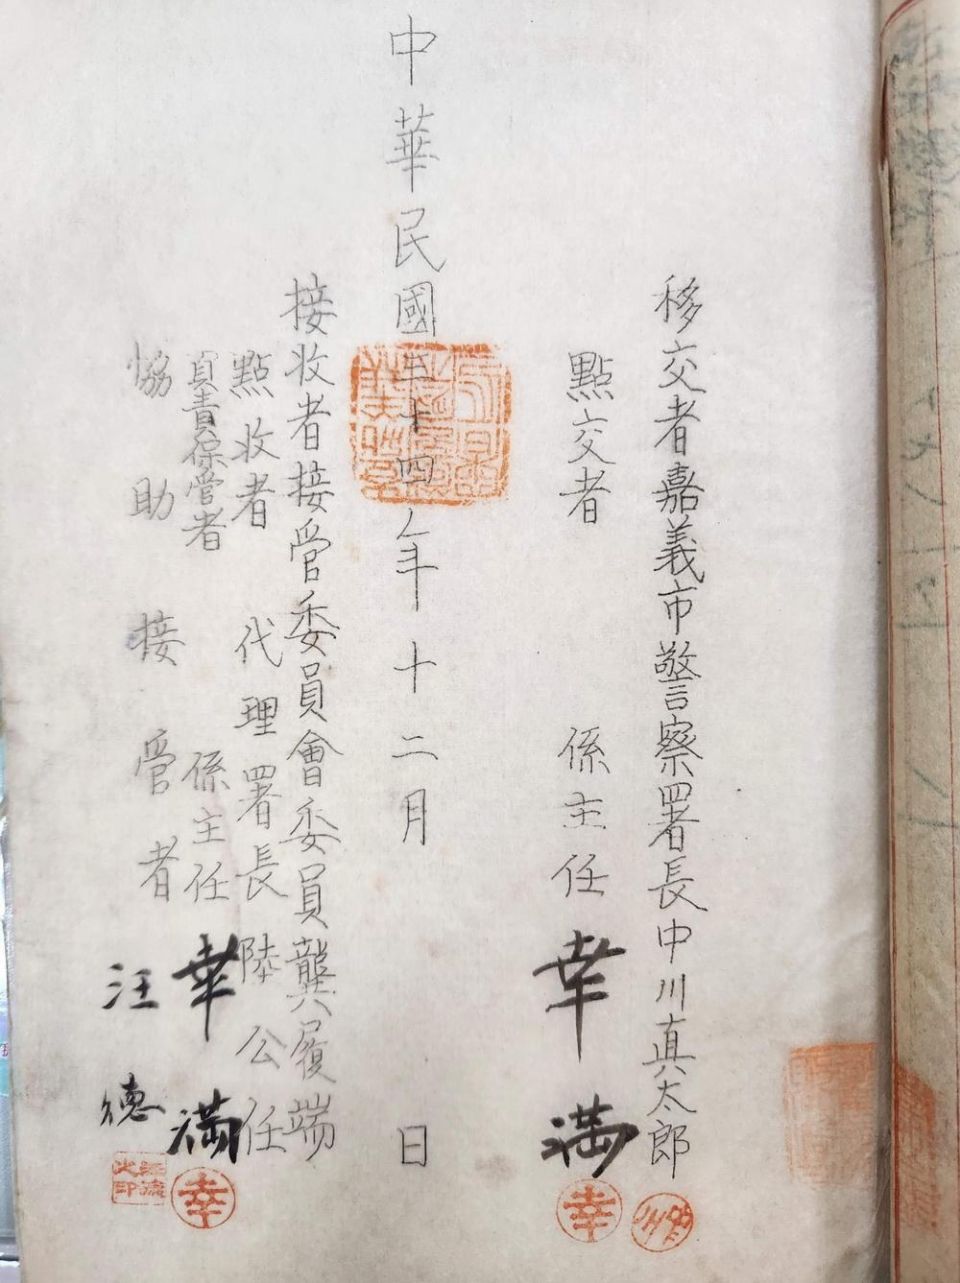 移交者嘉義市警察署長中川真太郎
點交者 係主任 幸満
幸
中華民國三十四年十二月 日
接收者接管委員會委員龔履端
點收者 代理署長陸公任
負責保管者 係主任 幸満
幸
協助接管者 汪德